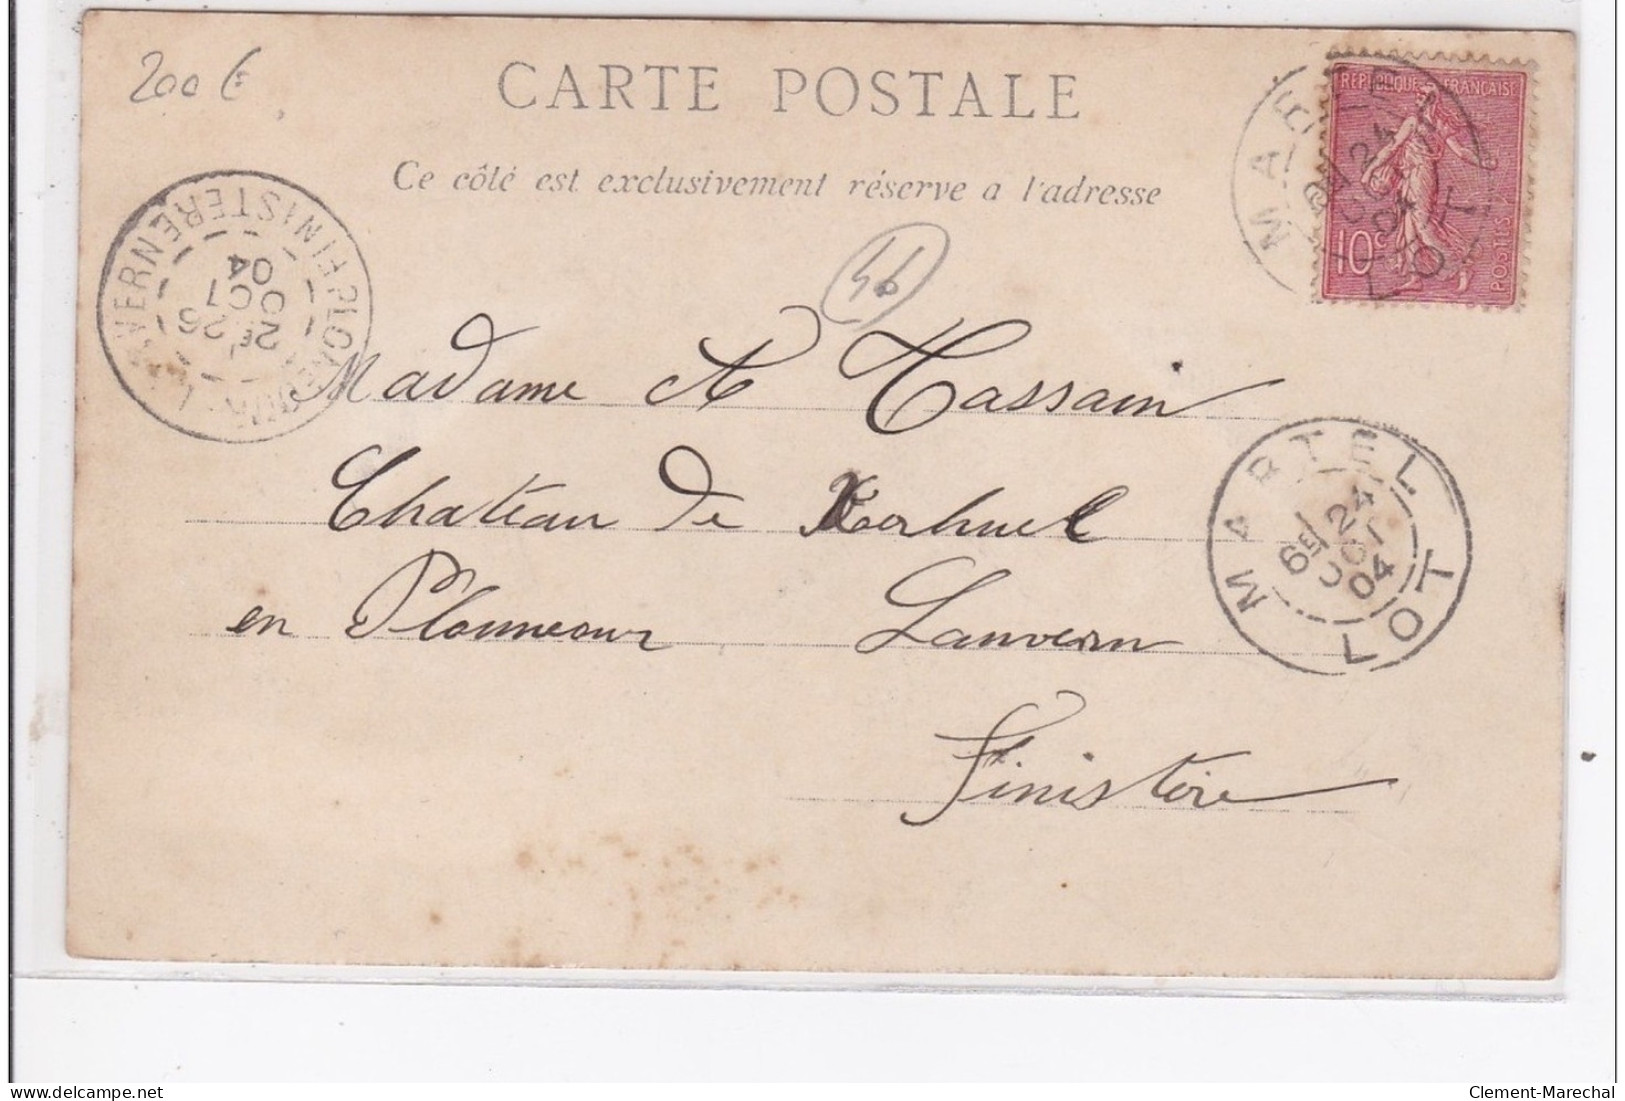 200 €
CARTE POSTALE
Ce côté est exclusivement réservé a l'adresse
REPUBLIQUE FRANÇAISE
10c
POSTES
MARTEL
LOT
24
04
46
FINISTERE
26
OCT
04
Madame A Hassain
Chateau de Kerhuel
en Plonneour Lanvern
Finistère
MARTEL
6E 24
OCT
04
LOT
delcampe.net
Clement-Marechal